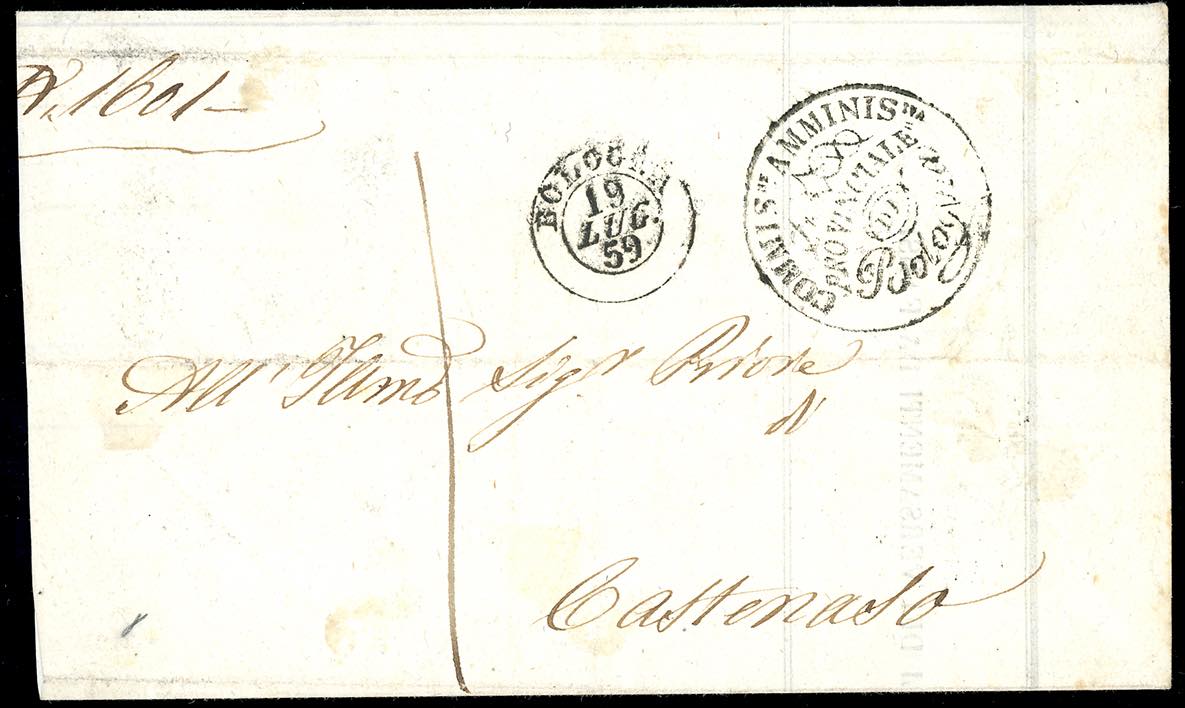 N°. 1601 —
BOLOGNA
19
LUG.
59
COMMISS.NE AMMINIS.TVA
PROVINCIALE
DI
Bologna
All' Illmo Sigr Priore
di
Castenaso